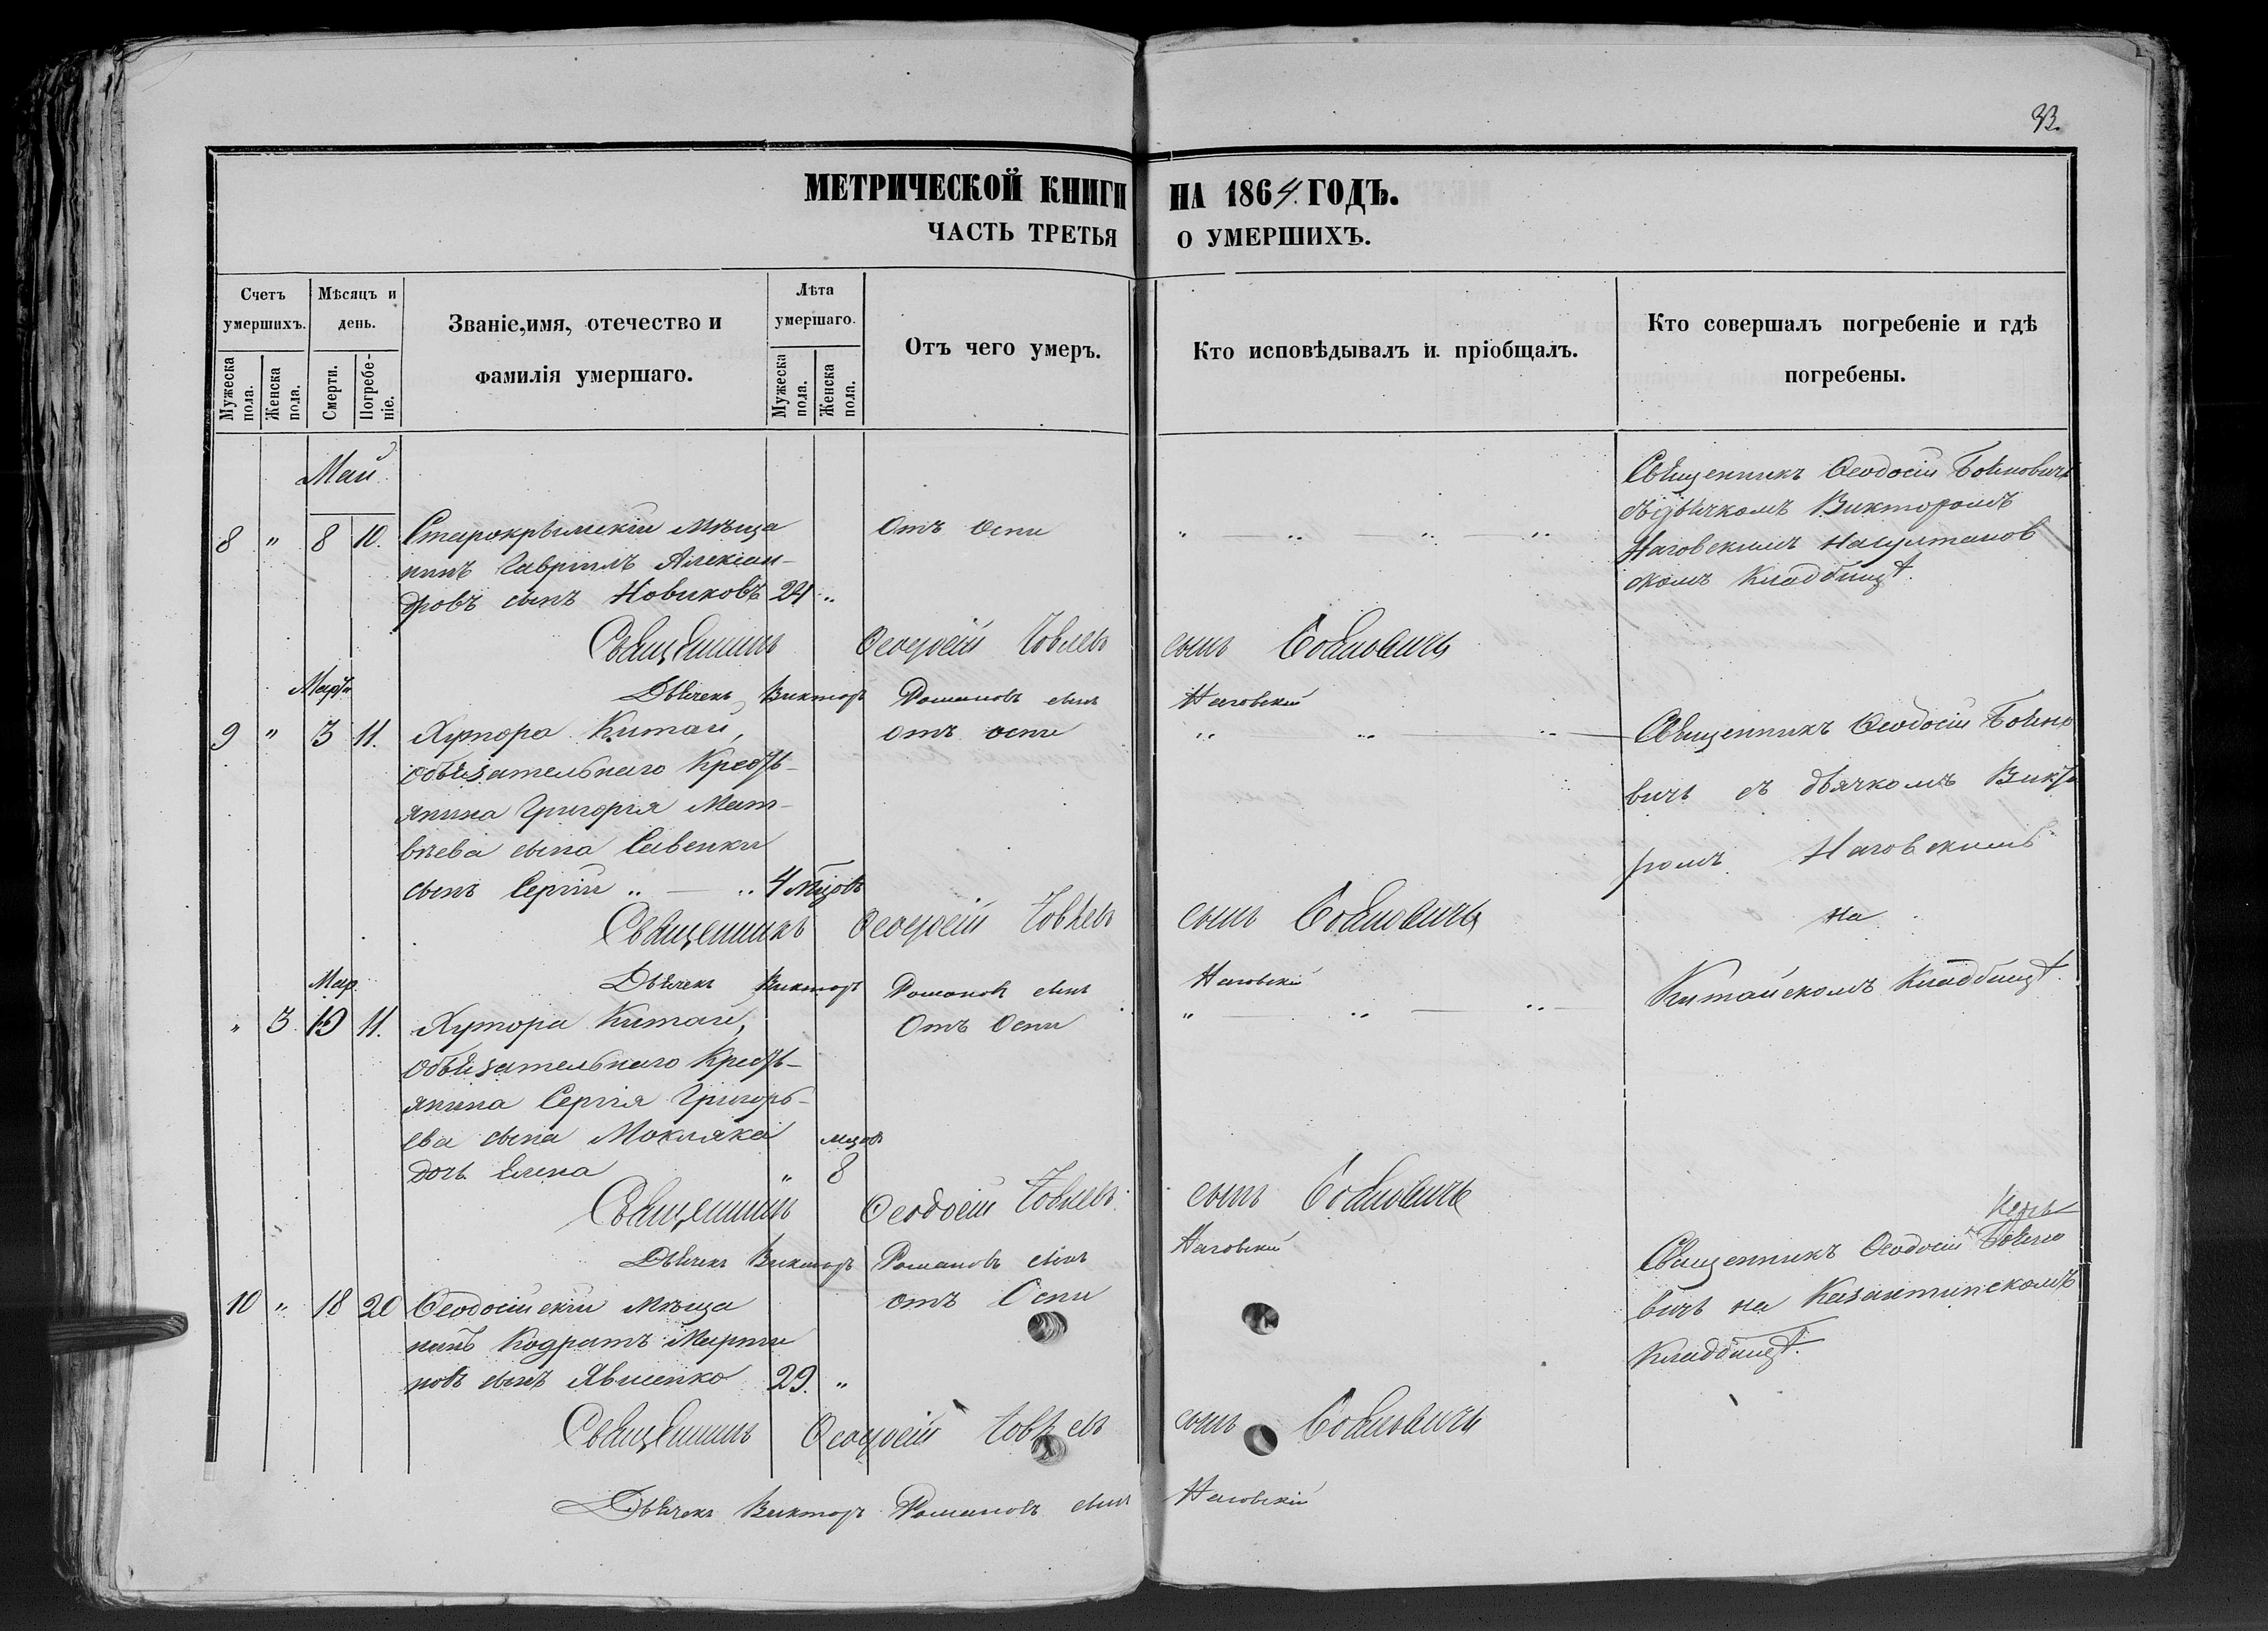 33.
МЕТРИЧЕСКОЙ КНИГИ НА 1864 ГОДЪ.
ЧАСТЬ ТРЕТЬЯ О УМЕРШИХЪ.
Счетъ умершихъ.
Мужеска пола.
Женска пола.
Мѣсяцъ и день.
Смерти.
Погребе-ніе.
Званіе,имя, отечество и фамилія умершаго.
Лѣта умершаго.
Мужеска пола.
Женска пола.
Отъ чего умеръ.
Кто исповѣдывалъ и пріобщалъ.
Кто совершалъ погребеніе и гдѣ погребены.
Май
8 " 8 10. Старокрымскій Мѣща
нинъ Гавріилъ Алексан-
дровъ сынъ Новиковъ 24 "
Отъ Оспи
Священникъ Ѳеодосій
Викторомъ
Наговскимъ
скомъ Кладбищѣ.
Священникъ Ѳеодосій сынъ
Дьячекъ Викторъ Романовъ сынъ Наговскій
Марта
9 " 3 11. Хутора Китай,
Обязательнаго Кресть-
янина Григорія Мат-
вѣева сына Савенки
сынъ Сергій " — " 4 мѣсов
отъ оспи
Священникъ Ѳеодосій
вичъ съ дьячкомъ Викто
ромъ Наговскимъ
на
Китайскомъ Кладбищѣ.
Священникъ Ѳеодосій сынъ
Дьячекъ Викторъ Романовъ сынъ Наговскій
Мар.
" 3. 11. Хутора Китай,
Обязательнаго Кресть-
янина Сергія Григорь-
ева сына Мокляка
дочь Елена " 8
Отъ Оспи
Священникъ Ѳеодосій сынъ
Дьячекъ Викторъ Романовъ сынъ Наговскій
10 " 18 20 Ѳеодосійскій Мѣща
нинъ Кодратъ Марти
новъ сынъ 29. "
отъ Оспи
Священникъ Ѳеодосій
вичъ на Казантипскомъ
Кладбищѣ.
Священникъ Ѳеодосій сынъ
Дьячекъ Викторъ Романовъ сынъ Наговскій